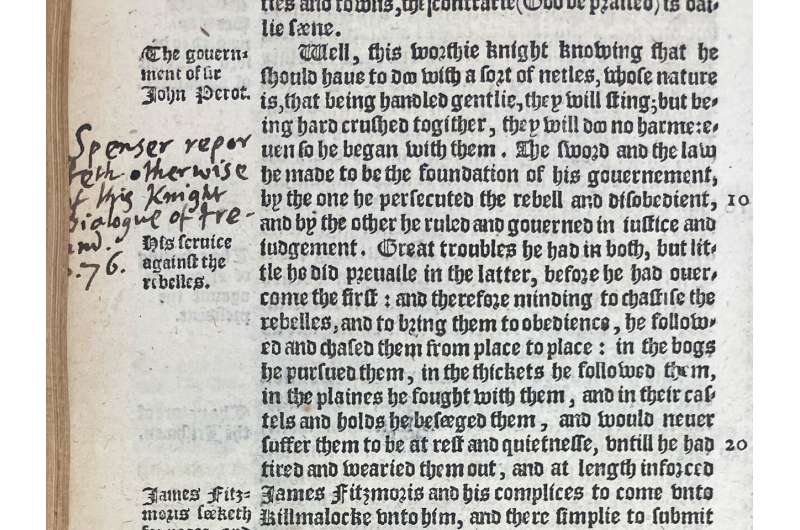 ties and towns, the contrarie (God be praised) is dai-
lie sæne.
The govern-
ment of sir
John Perot.
Well, this worthie knight knowing that he
should haue to doo with a sort of netles, whose nature
is, that being handled gentlie, they will sting; but be-
ing hard crushed togither, they will doo no harme: e-
uen so he began with them. The sword and the law
he made to be the foundation of his gouernement,
by the one he persecuted the rebell and disobedient,
10
and by the other he ruled and governed in iustice and
iudgement. Great troubles he had in both, but lit-
tle he did preuaile in the latter, before he had ouer-
come the first: and therefore minding to chastise the
rebelles, and to bring them to obedience, he follow-
ed and chased them from place to place: in the bogs
he pursued them, in the thickets he followed them,
in the plaines he fought with them, and in their cas-
tels and holds he besæged them, and would neuer
suffer them to be at rest and quietnesse, vntill he had
20
tired and wearied them out, and at length inforced
James Fitzmoris and his complices to come vnto
Killmalocke vnto him, and there simplie to submit
Spenser repor
teth otherwise
of this Knight
Dialogue of Ire-
land.
p.76.
His seruice
against the
rebelles.
James Fitz-
moris sæketh